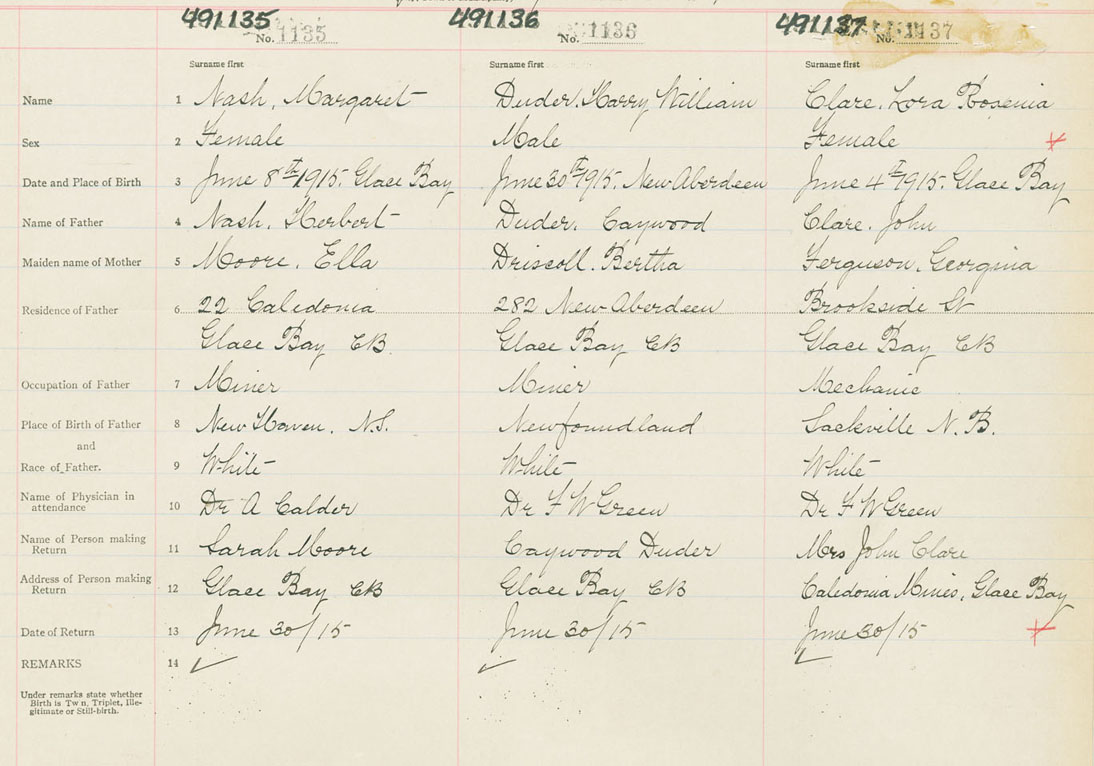 491135 491136 491137
No. 1135 No. 1136 No. 1137
Surname first Surname first Surname first
Name 1 Nash, Margaret Duder, Harry William Clare, Lora Rosenia
Sex 2 Female Male Female
Date and Place of Birth 3 June 8th 1915. Glace Bay June 30th 1915. New Aberdeen June 4th 1915. Glace Bay
Name of Father 4 Nash, Herbert Duder, Caywood Clare, John
Maiden name of Mother 5 Moore, Ella Driscoll, Bertha Ferguson, Georgina
Residence of Father 6 22 Caledonia 282 New Aberdeen Brookside St
Glace Bay CB. Glace Bay CB Glace Bay CB
Occupation of Father 7 Miner Miner Mechanic
Place of Birth of Father 8 New Haven, N.S. Newfoundland Sackville N.B.
and
Race of Father. 9 White White White
Name of Physician in attendance 10 Dr A Calder Dr F W Green Dr F W Green
Name of Person making Return 11 Sarah Moore Caywood Duder Mrs John Clare
Address of Person making Return 12 Glace Bay CB Glace Bay CB Caledonia Mines, Glace Bay
Date of Return 13 June 30/15 June 30/15 June 30/15
REMARKS 14
Under remarks state whether
Birth is Twin, Triplet, Ille-
gitimate or Still-birth.